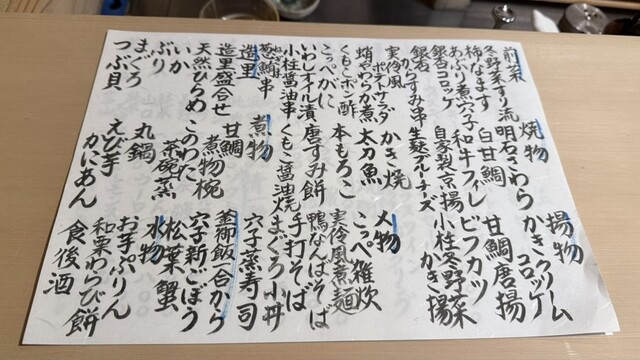 前菜
冬野菜すり流し
柿なます
あぶり煮穴子
銀杏コロッケ
銀杏
からすみ串
実伶風
ポテトサラダ
蛸やわらか煮
くもこポン酢
こっぺがに
いわしオイル漬
小柱醤油串
葱鮪串
造里
造里盛合せ
天然ひらめ
いか
ぶり
まぐろ
つぶ貝
焼物
明石さわら
白甘鯛
和牛フィレ
自家製京揚
生麩ブルーチーズ
かき焼
太刀魚
本もろこ
唐すみ餅
くもこ醤油焼
煮物
甘鯛
煮物椀
このわた
茶碗蒸
丸鍋
えび芋
かにあん
揚物
かきクリーム
コロッケ
甘鯛唐揚
ビフカツ
小柱冬野菜
かき揚
〆物
こっぺ雑炊
実伶風煮麺
鴨なんばそば
手打そば
まぐろ小丼
穴子蒸寿司
釜御飯一合から
穴子新ごぼう
松葉蟹
水物
お芋ぷりん
和栗わらび餅
食後酒